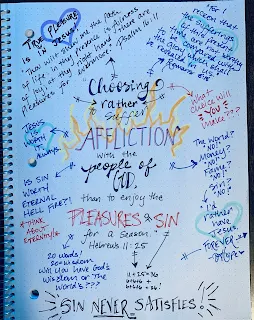 TRUE PLEASURE
IS IN JESUS!
Thou wilt shew me the path
of life: in thy presence is fulness
of joy; at thy right hand there are
pleasures for evermore.
Psalms 16:11
For I
reckon that
the sufferings
of this present
time are not
worthy to be
compared with
the glory which
shall be revealed
in us.
Romans 8:18
Choosing
rather to
suffer
AFFLICTION
with the
people of
GOD,
than to enjoy the
PLEASURES of SIN
for a season.
Hebrews 11:25
Jesus
Worth
IS SIN
WORTH
ETERNAL
HELL FIRE?!
*THINK
ABOUT
ETERNITY!
What
choice will
YOU
make??
The World?
No!
Money?
No!
Fame?
No!
Sin?
No!
I'd
rather
have
Jesus.
FOREVER
20 words!
20=Wisdom
Will you have God's
Wisdom or The
World's???
11+25=36
SIN NEVER SATISFIES!